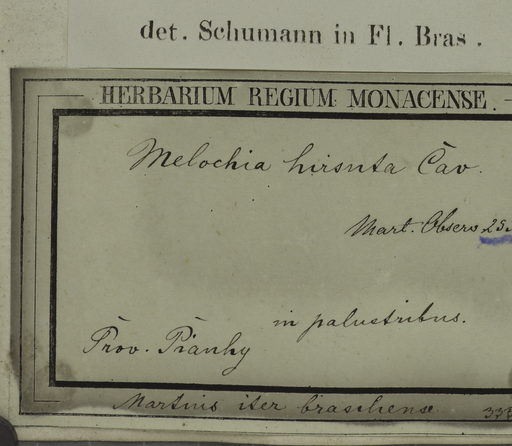 det. Schumann in Fl. Bras.
HERBARIUM REGIUM MONACENSE.
Melochia hirsuta Cav.
Mart. Observ.
in palustribus.
Prov. Piauhy
Martius iter brasiliense